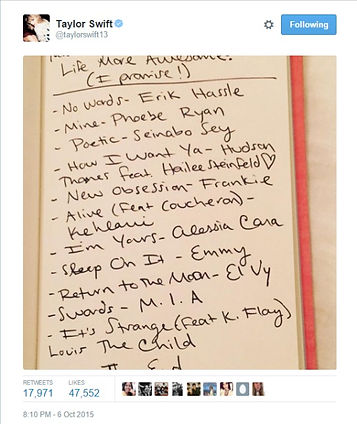 Taylor Swift
@taylorswift13
Following
Life More Awesome!
(I promise!)
- No Words - Erik Hassle
- Mine - Phoebe Ryan
- Poetic - Seinabo Sey
- How I Want Ya - Hudson
Thames feat. Hailee Steinfeld♡
- New Obsession - Frankie
- Alive (Feat Coucheron) -
Kehlani
- I'm Yours - Alessia Cara
- Sleep On It - Emmy
- Return to the Moon - El Vy
- Swords - M.I.A
- It's Strange (Feat K. Flay)
Louis The Child
RETWEETS LIKES
17,971 47,552
8:10 PM - 6 Oct 2015